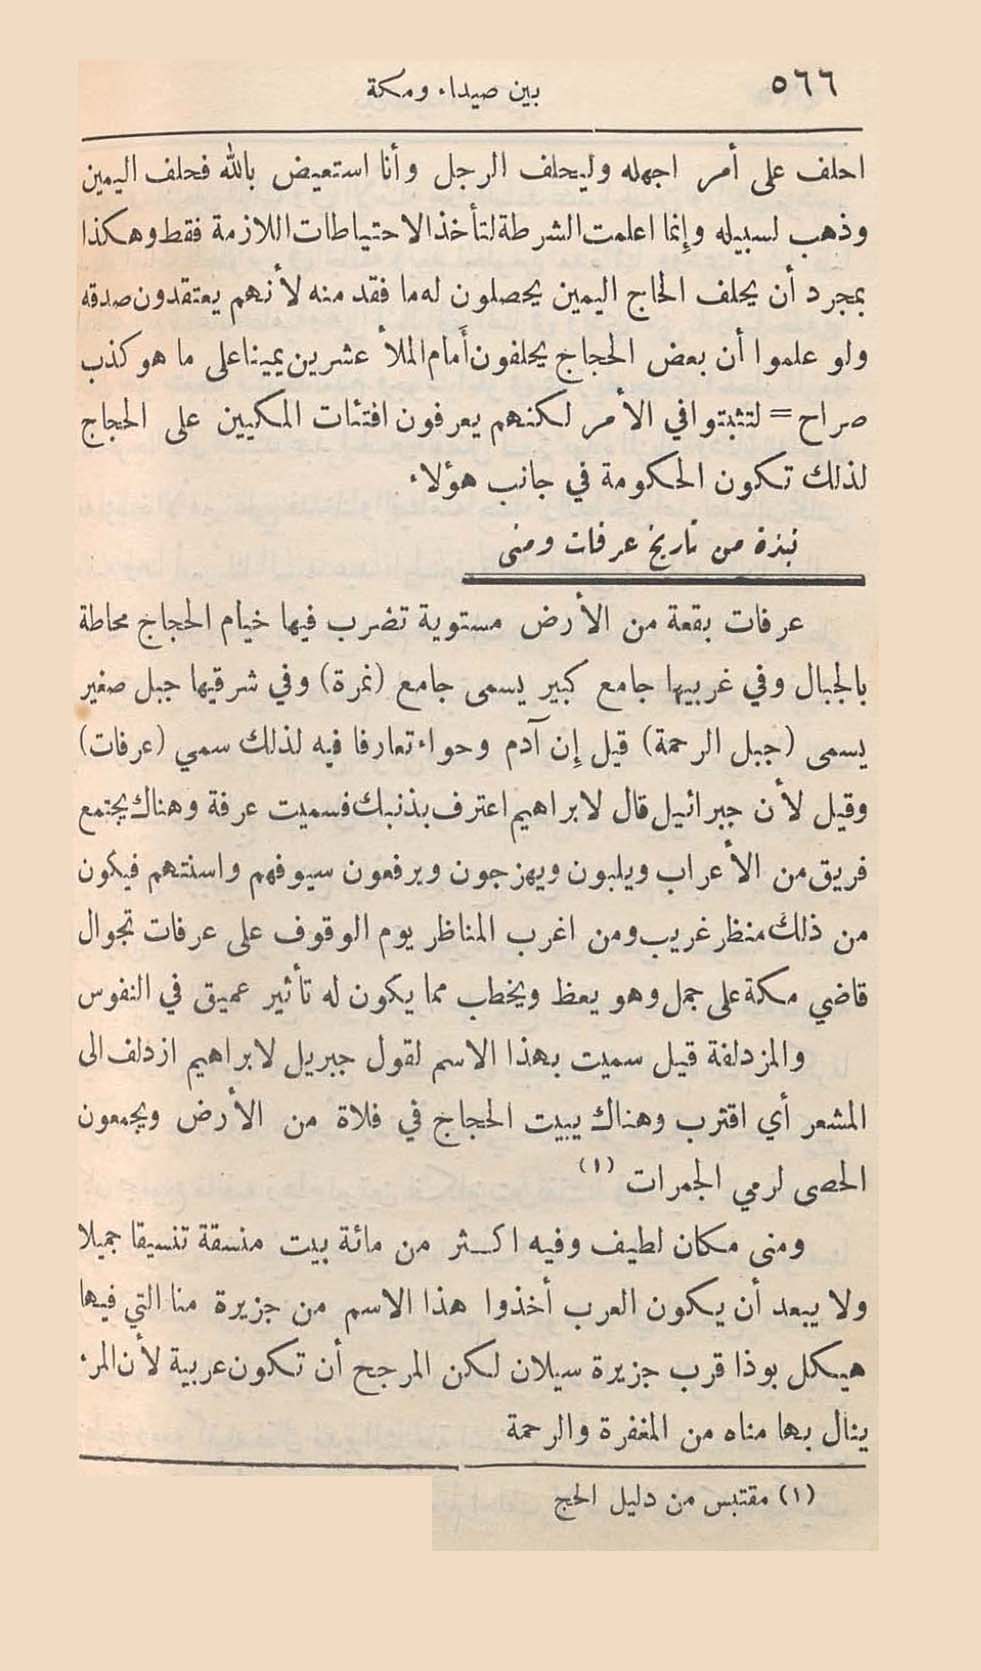 ٥٦٦ بين صيداء ومكة
احلف على أمر اجهله وليحلف الرجل وأنا استعيض بالله فحلف اليمين
وذهب لسبيله وإنما اعلمت الشرطة لتأخذ الاحتياطات اللازمة فقط وهكذا
بمجرد أن يحلف الحاج اليمين يحصلون له ما فقد منه لأنهم يعتقدون صدقه
ولو علموا أن بعض الحجاج يحلفون أمام الملأ عشرين يمينا على ما هو كذب
صراح = لتثبتوا في الأمر لكنهم يعرفون افتئات المكيين على الحجاج
لذلك تكون الحكومة في جانب هؤلاء
نبذة من تاريخ عرفات ومنى
عرفات بقعة من الأرض مستوية تضرب فيها خيام الحجاج محاطة
بالجبال وفي غربيها جامع كبير يسمى جامع (نمرة) وفي شرقيها جبل صغير
يسمى (جبل الرحمة) قيل إن آدم وحواء تعارفا فيه لذلك سمي (عرفات)
وقيل لأن جبرائيل قال لابراهيم اعترف بذنبك فسميت عرفة وهناك يجتمع
فريق من الأعراب ويلبون ويهزجون ويرفعون سيوفهم واسنتهم فيكون
من ذلك منظر غريب ومن اغرب المناظر يوم الوقوف على عرفات تجوال
قاضي مكة على جمل وهو يعظ ويخطب مما يكون له تأثير عميق في النفوس
والمزدلفة قيل سميت بهذا الاسم لقول جبريل لابراهيم ازدلف الى
المشعر أي اقترب وهناك يبيت الحجاج في فلاة من الأرض ويجمعون
الحصى لرمي الجمرات (١)
ومنى مكان لطيف وفيه اكثر من مائة بيت منسقة تنسيقا جميلا
ولا يبعد أن يكون العرب أخذوا هذا الاسم من جزيرة منا التي فيها
هيكل بوذا قرب جزيرة سيلان لكن المرجح أن تكون عربية لأن المرء
ينال بها مناه من المغفرة والرحمة
(١) مقتبس من دليل الحج